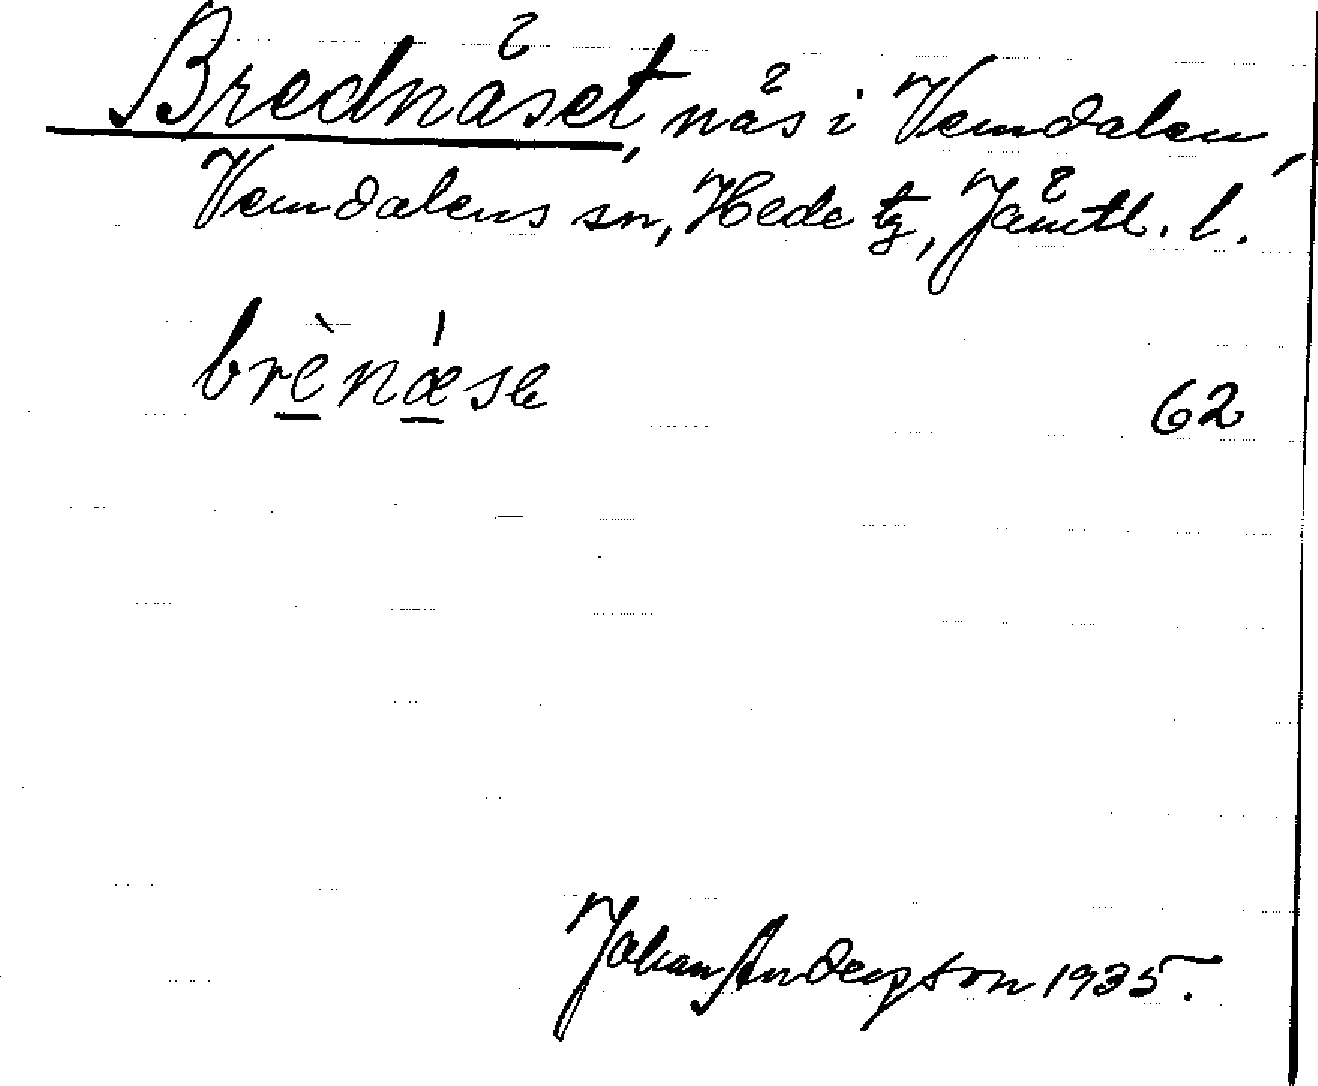 Brednäset, näs i Vemdalen,
Vemdalens sn, Hede tg, Jämtl. l.
brè̱nǽ̱sə 62
Johan Anderzson 1935.